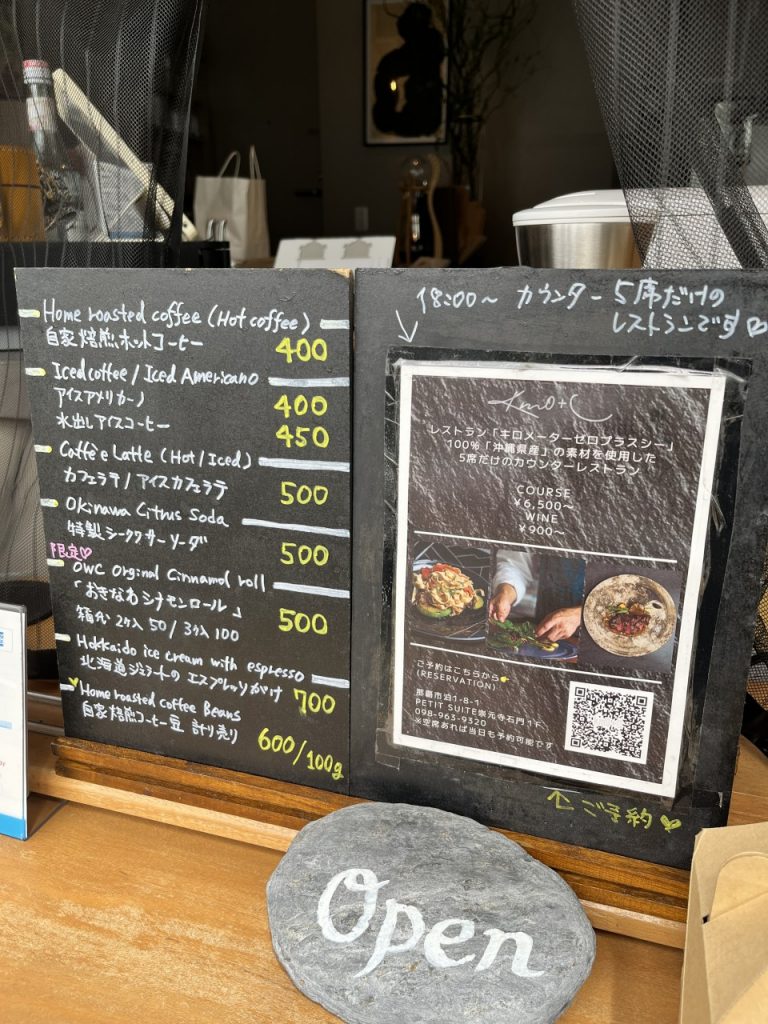 Home roasted coffee (Hot coffee)
自家焙煎ホットコーヒー 400
Iced coffee / Iced Americano
アイスアメリカーノ 400
水出しアイスコーヒー 450
Caffè e Latte (Hot/Iced)
カフェラテ/アイスカフェラテ 500
Okinawa Citrus Soda
特製シークワサーソーダ 500
限定♡
OWC Orginal Cinnamol roll
「おきなわシナモンロール」 500
箱代 2ケ入 50/3ケ入 100
Hokkaido ice cream with espresso
北海道ジェラートの エスプレッソがけ 700
Home roasted coffee Beans
自家焙煎コーヒー豆 計り売り 600/100g
18:00〜 カウンター 5席だけの
レストランです♡
Km0+C
レストラン「キロメーターゼロプラスシー」
100%「沖縄県産」の素材を使用した
5席だけのカウンターレストラン
COURSE
¥6,500〜
WINE
¥900〜
ご予約はこちらから👉
(RESERVATION)
那覇市泊1-8-1
PETIT SUITE崇元寺石門 1F
098-963-9320
※空席あれば当日も予約可能です
↑ ご予約
Open